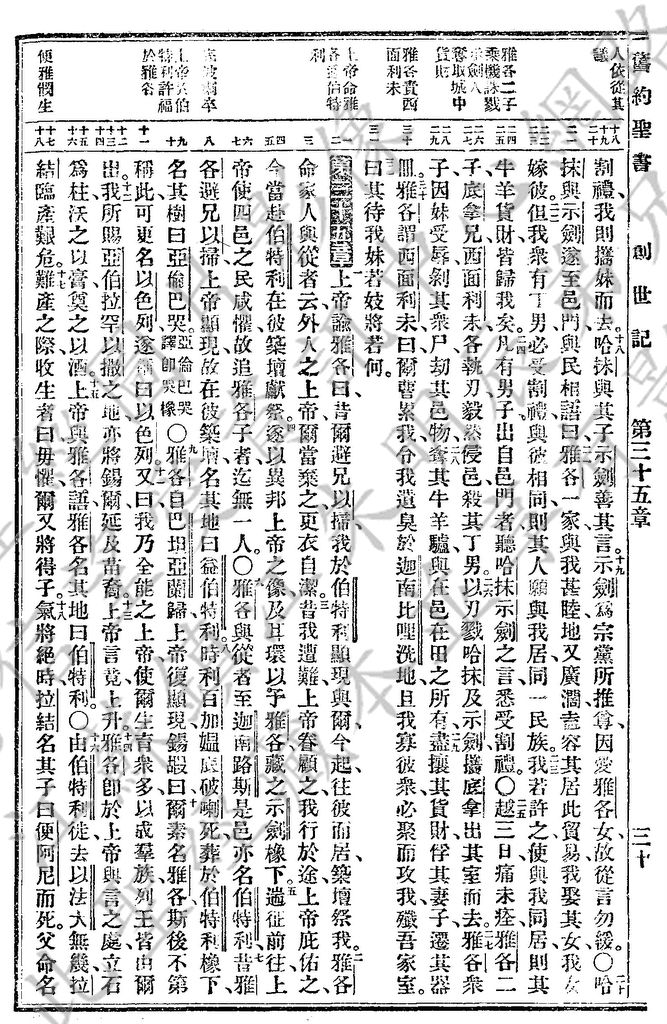 舊約聖書 創世記 第三十五章 三十
人依從其議
雅各二子乘機誅戮示劍人奪取城中貨財
雅各責西面利未
上帝命雅各至伯特利
底破喇卒
上帝在伯特利許福於雅各
便雅憫生
割禮我則攜妹而去哈抹與其子示劍善其言示劍為宗黨所推尊因愛雅各女故從言勿緩〇哈
抹與示劍遂至邑門與民相語曰雅各一家與我甚睦地又廣濶盍容其居此貿易我娶其女我女
嫁彼但我眾有丁男必受割禮與彼相同則其人願與我居同一民族我若許之使與我同居則其
牛羊貨財皆歸我矣凡有男子出自邑門者聽哈抹示劍之言悉受割禮〇越三日痛未痊雅各二
子底拿兄西面利未各執刃毅然侵邑殺其丁男以刃戮哈抹及示劍攜底拿出其室而去雅各眾
子因妹受辱剝其眾尸劫其邑物奪其牛羊驢與在邑在田之所有盡攘其貨財俘其妻子遷其器
皿雅各謂西面利未曰爾曹累我令我遺臭於迦南比哩洗地且我寡彼眾必聚而攻我殲吾家室
曰其待我妹若妓將若何
第三十五章 上帝諭雅各曰昔爾避兄以掃我於伯特利顯現與爾今起往彼而居築壇祭我雅各
命家人與從者云外人之上帝爾當棄之更衣自潔昔我遭難上帝眷顧之我行於途上帝庇佑之
今當赴伯特利在彼築壇獻祭遂以異邦上帝之像及耳環以予雅各藏之示劍橡下遄征前往上
帝使四邑之民咸懼故追雅各子者迄無一人〇雅各與從者至迦南路斯是邑亦名伯特利昔雅
各避兄以掃上帝顯現故在彼築壇名其地曰益伯特利時利百加媼底破喇死葬於伯特利橡下
名其樹曰亞倫巴哭亞倫巴哭譯即哭橡〇雅各自巴坦亞蘭歸上帝復顯現錫嘏曰爾素名雅各斯後不第
稱此可更名以色列遂稱曰以色列又曰我乃全能之上帝使爾生育眾多以成羣族列王皆由爾
出我所賜亞伯拉罕以撒之地亦將錫爾延及苗裔上帝言竟上升雅各即於上帝與言之處立石
為柱沃之以膏奠之以酒上帝與雅各語雅各名其地曰伯特利〇由伯特利徙去以法大無幾拉
結臨產艱危難產之際收生者曰毋懼爾又將得子氣將絕時拉結名其子曰便阿尼而死父命名